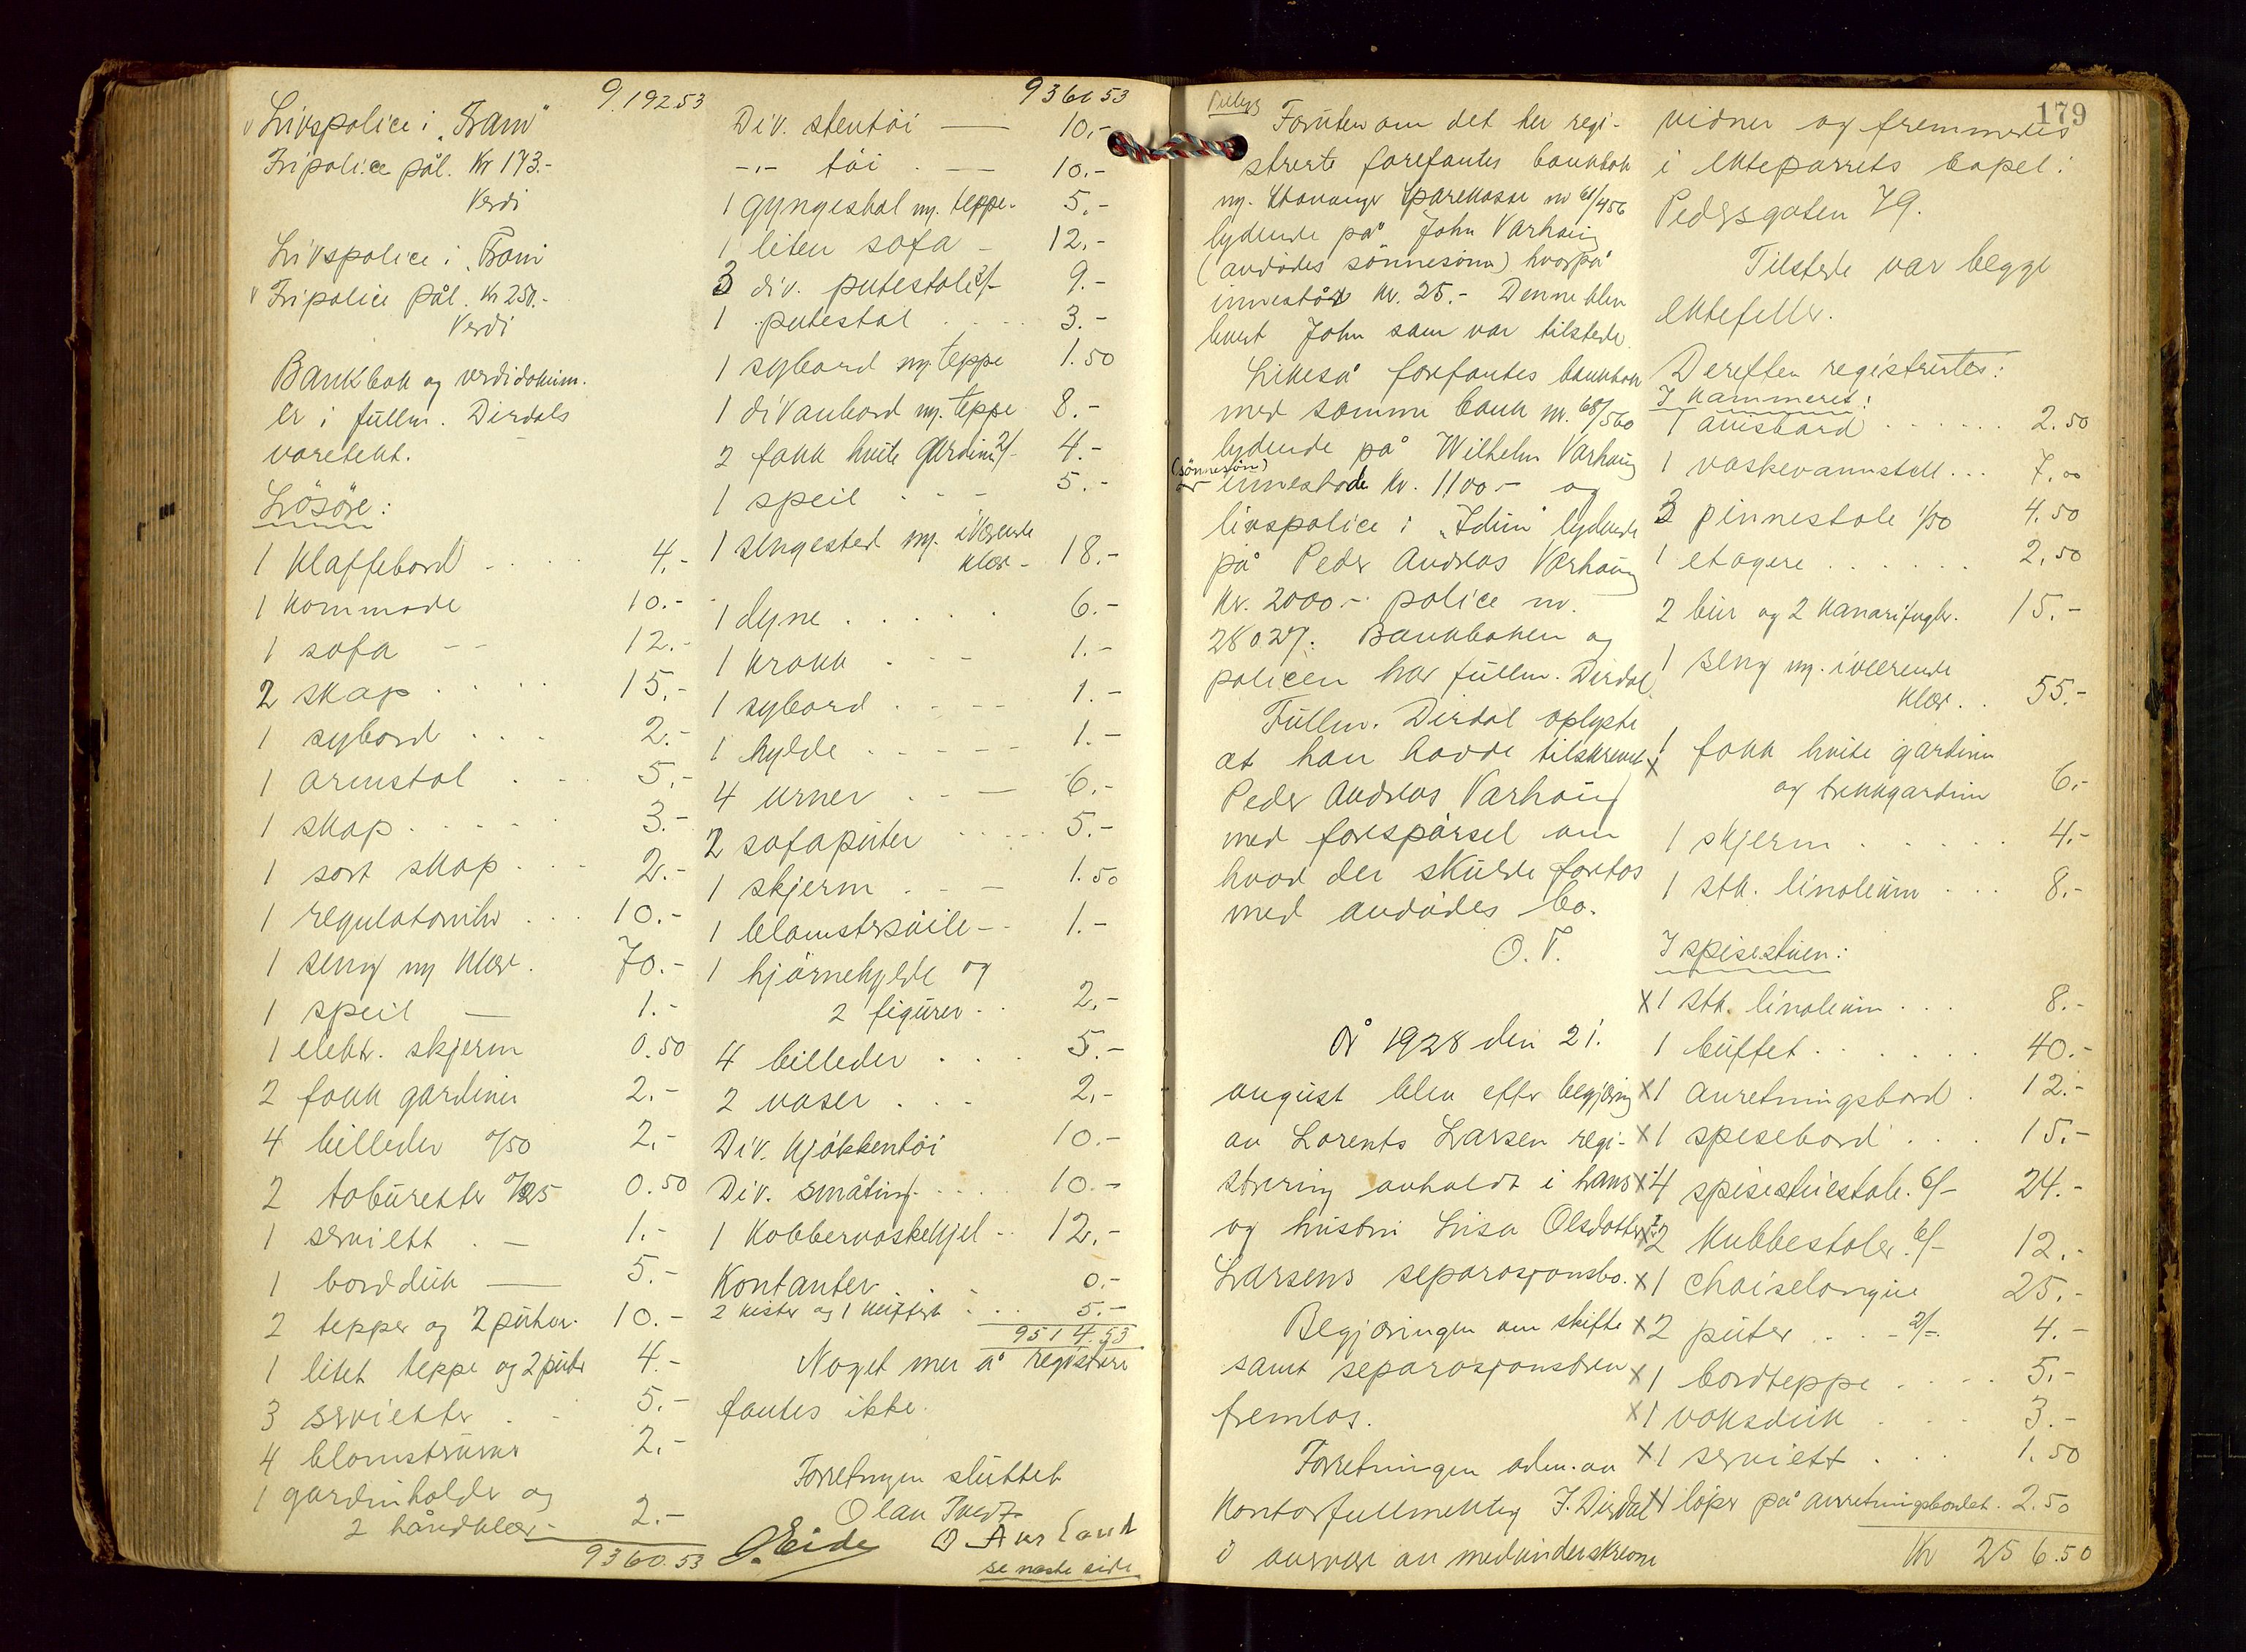 9.192.53
Livspolice i "Fram"
Fripolice pål. Kr 173.-
Verdi
Livspolice i "Fram
Fripolice pål. Kr 250.-
Verdi
Bankbok og verdidokum.
er i fullm. Dirdals
varetekt.
Lösöre:
1 klaffebord 4.-
1 kommode 10.-
1 sofa 12.-
2 skap 15.-
1 sybord 2.-
1 armstol 5.-
1 skap 3.-
1 sort skap 2.-
1 regulatoruhr 10.-
1 seng m klær. 70.-
1 speil 1.-
1 elektr. skjerm 0.50
2 fakk gardiner 2.-
4 billeder 0/50 2.-
2 taburetter 0/25 0.50
1 serviett 1.-
1 bordduk 5.-
2 tepper og 2 puter. 10.-
1 litet teppe og 2 puter 4.-
3 servietter 5.-
4 blomsterurner 2.-
1 gardinholder og
2 håndklær 2.-
9360.53
9360 53
Div. stentöi 10.-
-"- töi 10.-
1 gyngestol m. teppe 5.-
1 liten sofa 12.-
3 div. putestole 3/- 9.-
1 putestol 3.-
1 sybord m. teppe 1.50
1 divanbord m. teppe 8.-
2 fakk hvite gardin 2/- 4.-
1 speil 5.-
1 sengested m. iværende
klær 18.-
1 dyne 6.-
1 krakk 1.-
1 sybord 1.-
1 hylde 1.-
4 urner 6.-
2 sofaputer 5.-
1 skjerm 1.50
1 blomstersöile 1.-
1 hjörnehylde og
2 figurer 2.-
4 billeder 5.-
2 vaser 2.-
Div. kjökkentöi 10.-
Div. småting 10.-
1 kobbervaskekjel 12.-
Kontanter 0.-
2 kister og 1 kuffert 5.-
9514.53
Noget mer å registrere
fantes ikke.
Forretngen sluttet
Olav Tvedt
O. Eide O Aurland
se næste side
179
Foruten om det her regi-
strerte forefantes bankbok
m. Stavanger Sparekasse nr 61/456
lydende på John Varhaug
(avdödes sönnesönn) hvorpå
innestår kr. 25.- Denne blev
levert John som var tilstede.
Likeså forefantes bankbok
med samme bank nr. 68/560
lydende på Wilhelm Varhaug
(sönnesön)
innestode kr. 1100.- og
livspolice i "Idun" lydende
på Peder Andreas Varhaug
kr. 2000.- police nr.
28027. Bankboken og
policen har fullm. Dirdal.
Fullm. Dirdal oplyste
at han hadde tilskrevet
Peder Andreas Varhaug
med forespörsel om
hvad der skulde foretas
med avdödes bo.
O. T.
År 1928 den 21.
august blev efter begjæring
av Lorents Larsen regi-
strering avholdt i hans
og hustru Lisa Olsdotter
Larsens separasjonsbo.
Begjæringen om skifte
samt separasjonsbev
fremlas.
Forretningen adm. av
kontorfullmektig J. Dirdal
i overvær av medunderskrevne
vidner og fremmedes
i ekteparrets bopel:
Pedersgaten 79.
Tilstede var begge
ektefeller.
Dereften registrertes:
I kammeret:
1 avisbord 2.50
1 vaskevannstell 7.00
3 pinnestole 1/50 4.50
1 etagere 2.50
2 bur og 2 kanarifugler. 15.-
1 seng m. iværende
klær 55.-
x 1 fakk hvite gardiner
og trekkgardin 6.-
1 skjerm 4.-
1 stk. linoleum 8.-
I spisestuen:
x 1 stk. linoleum 8.-
1 buffet 40.-
x 1 anretningsbord 12.-
x 1 spisebord 15.-
x 4 spisestuestole. 6/- 24.-
x 2 kubbestoler 6/- 12.-
x 1 chaiselongue 25.-
x 2 puter 2/- 4.-
x 1 bordteppe 5.-
x 1 voksduk 3.-
x 1 serviett 1.50
x 1 löper på anretningsbordet. 2.50
Kr 256.50